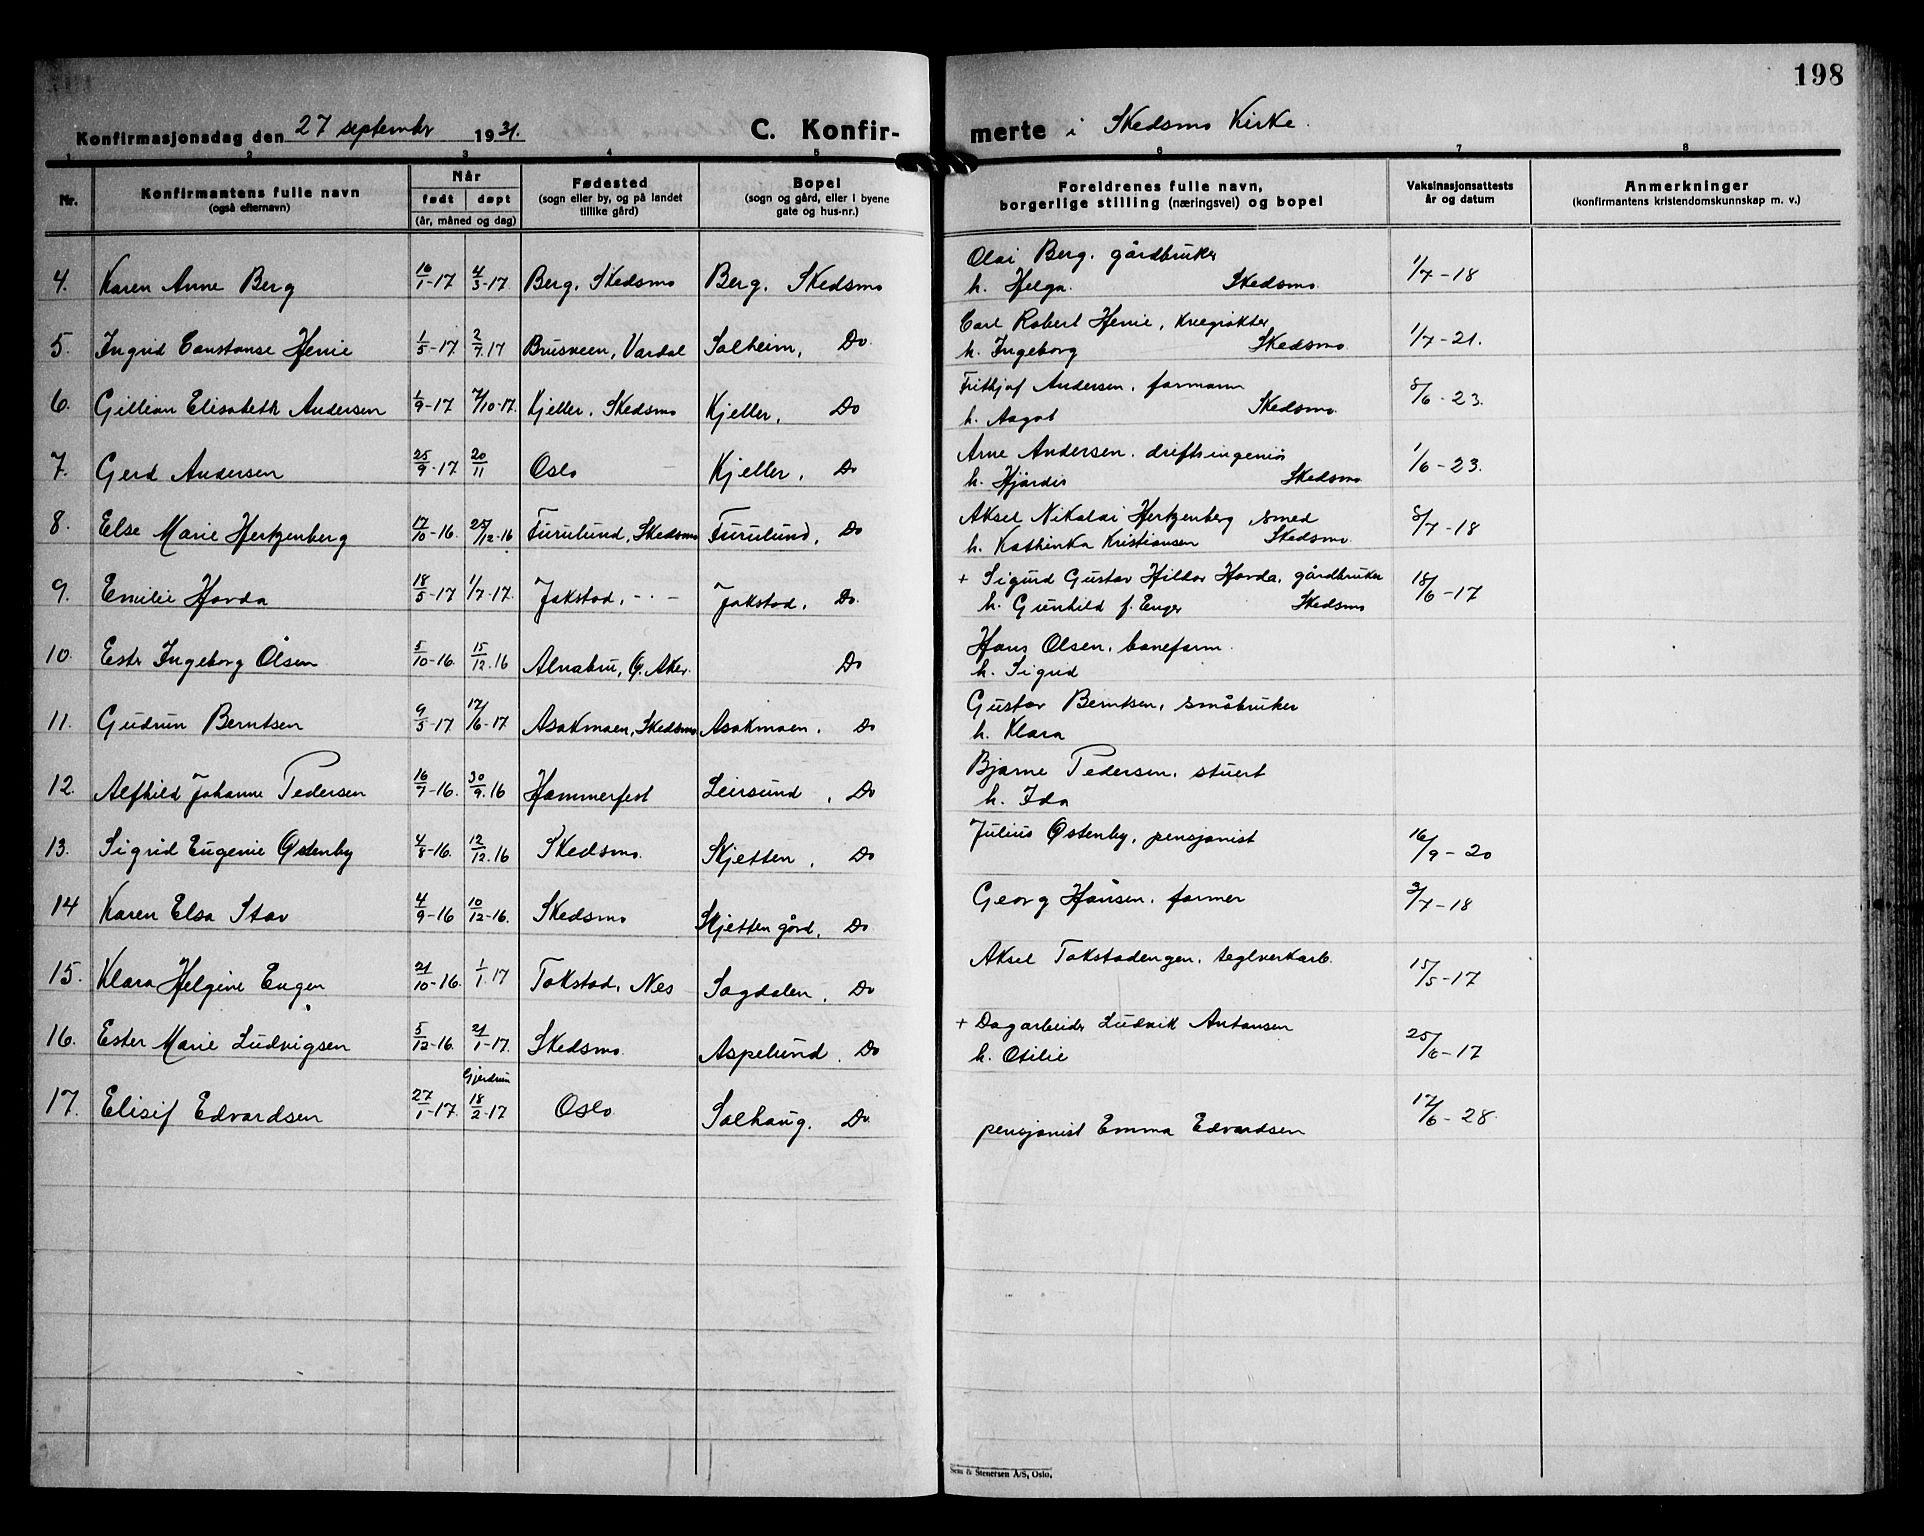 198
Konfirmasjonsdag den 27 septembr 1931. C. Konfir-merte i Skedsmo Kirke.
1 2 3 4 5 6 7 8
Nr. Konfirmantens fulle navn (også efternavn) Når født døpt (år, måned og dag) Fødested (sogn eller by, og på landet tillike gård) Bopel (sogn og gård, eller i byene gate og hus-nr.) Foreldrenes fulle navn, borgerlige stilling (næringsvei) og bopel Vaksinasjonsattests år og datum Anmerkninger (konfirmantens kristendomskunnskap m. v.)
4. Karen Anne Berg 16/1-17 4/3-17 Berg, Skedsmo Berg, Skedsmo Olai Berg, gårdbruker 1/7-18
h. Helga. Skedsmo.
5. Ingrid Constanse Henie 1/5-17 2/7.17 Brusveen, Vardal Solheim, Do. Carl Robert Henie, Krøtterrøkter 1/7-21.
h. Ingeborg Skedsmo.
6. Gillian Elisabeth Andersen 1/9-17 7/10-17. Kjeller, Skedsmo Kjeller, Do Frithjof Andersen, formann 8/6-23.
h. Aagot Skedsmo.
7. Gerd Andersen 25/9-17 20/11 Oslo Kjeller, Do Arne Andersen, driftsingeniør 1/6-23.
h. Hjørdis Skedsmo
8. Else Marie Hertzenberg 17/10-16. 25/12-16 Furulund, Skedsmo Furulund, Do Aksel Nikolai Hertzenberg, smed 8/7-18
h. Kathinka Kristiansen Skedsmo.
9. Emilie Hovda 18/5-17 1/7-17. Jokstad, - " - Jokstad, Do. + Sigurd Gustav Hildor Hovda, gårdbruker 18/6-17
h. Gunhild f. Enger Skedsmo
10. Ester Ingeborg Olsen 5/10-16. 15/12.16 Alnabru, Ø. Aker. Do Hans Olsen, baneform.
h. Sigrid
11. Gudrun Berntsen 9/5-17 17/6-17 Asakmoen, Skedsmo Asakmoen, Do Gustav Berntsen, småbruker
h. Klara
12. Alfhild Johanne Pedersen 16/7-16. 30/9.16 Hammerfest Leirsund, Do Bjarne Pedersen, stuert
h. Ida
13. Sigrid Eugenie Østenby 4/8-16. 12/12.16 Skedsmo. Skjetten, Do Julius Østenby, pensjonist 16/9-20
14 Karen Elsa Stav 4/9-16 10/12-16. Skedsmo Skjetten gård, Do Georg Hansen, farmer 3/7-18
15. Klara Helgine Enger 21/10-16. 1/1.17 Tokstad, Nes Sagdalen, Do Aksel Tokstadengen, teglverkarb. 15/5-17
16. Ester Marie Ludvigsen 5/12-16. 21/1-17. Skedsmo. Aspelund, Do + Dagarbeider Ludvik Antonsen 25/6-17
h. Otilie
17. Elisif Edvardsen 27/1-17. Gjerdrum 18/2-17 Oslo Solhaug, Do. pensjonist Emma Edvardsen 12/6-28.
Sem & Stenersen A/S, Oslo.